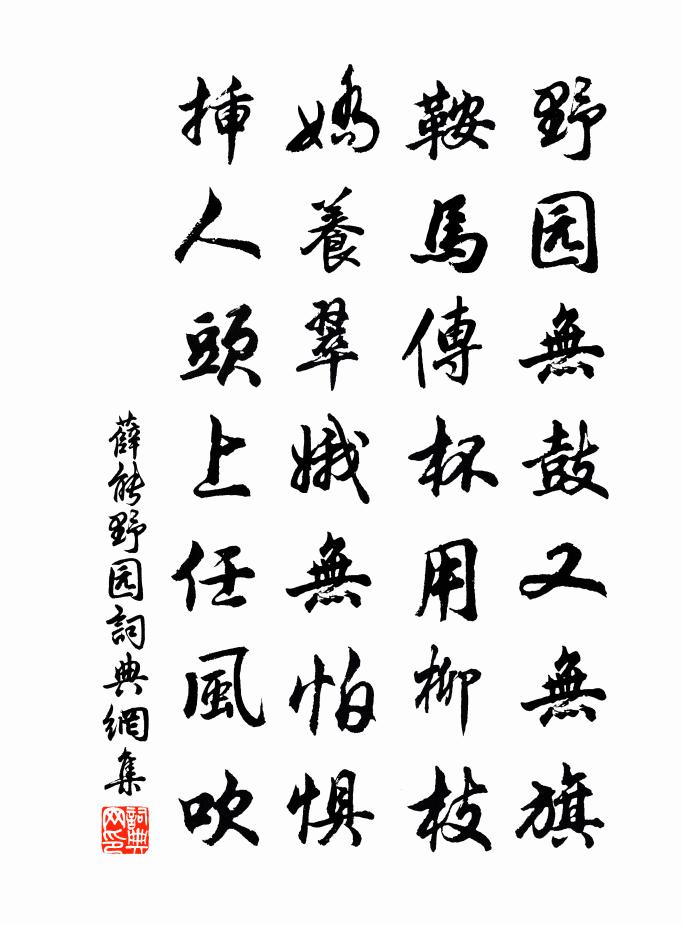 野园無鼓又無旗
鞍馬傳杯用柳枝
嬌養翠娥無怕惧
插人頭上任風吹
薛能野园詞典網集
詞典网印